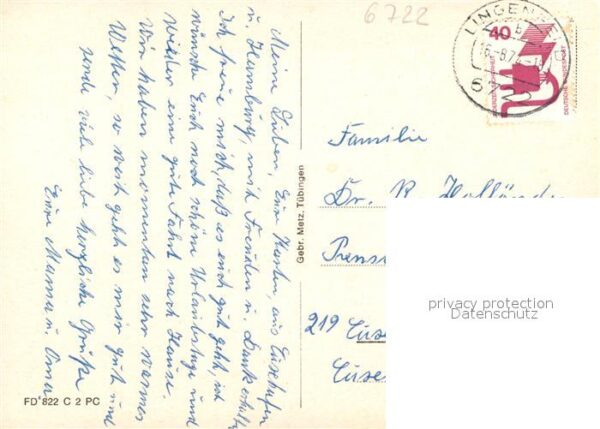 Meine Lieben, Eure Karten, aus Cuxhafen
u. Hamburg, mit Freuden u. Dank erhalten
Ich freue mich, daß es euch gut geht, ich
wünsche Euch noch schöne Urlaubstage und
wieder eine gute Fahrt nach Hause.
Wir haben momentan sehr warmes
Wetter, so weit geht es mir gut und
sende viele liebe herzliche Grüße
Eure Mama u. Oma
FD 822 C 2 PC
Gebr. Metz, Tübingen
6722
LINGENFELD
6722
40
DEUTSCHE BUNDESPOST
Familie
Dr. R. Hollände
Pens
219 Cux
Cuxe
privacy protection
Datenschutz